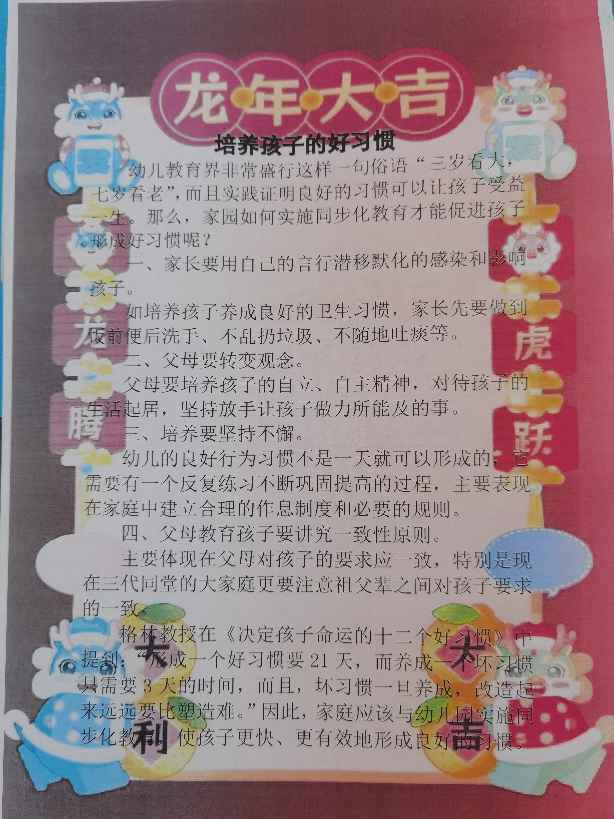 龙年大吉
培养孩子的好习惯
幼儿教育界非常盛行这样一句俗语“三岁看大，
七岁看老”，而且实践证明良好的习惯可以让孩子受益
一生。那么，家园如何实施同步化教育才能促进孩子
形成好习惯呢？
一、家长要用自己的言行潜移默化的感染和影响
孩子。
如培养孩子养成良好的卫生习惯，家长先要做到
饭前便后洗手、不乱扔垃圾、不随地吐痰等。
二、父母要转变观念。
父母要培养孩子的自立、自主精神，对待孩子的
生活起居，坚持放手让孩子做力所能及的事。
三、培养要坚持不懈。
幼儿的良好行为习惯不是一天就可以形成的，它
需要有一个反复练习不断巩固提高的过程，主要表现
在家庭中建立合理的作息制度和必要的规则。
四、父母教育孩子要讲究一致性原则。
主要体现在父母对孩子的要求应一致，特别是现
在三代同堂的大家庭更要注意祖父辈之间对孩子要求
的一致。
格林教授在《决定孩子命运的十二个好习惯》中
提到：“养成一个好习惯要21天，而养成一个坏习惯
只需要3天的时间，而且，坏习惯一旦养成，改造起
来远远要比塑造难。”因此，家庭应该与幼儿园实施同
步化教育，使孩子更快、更有效地形成良好的习惯。
龙
腾
虎
跃
大
利
大
吉